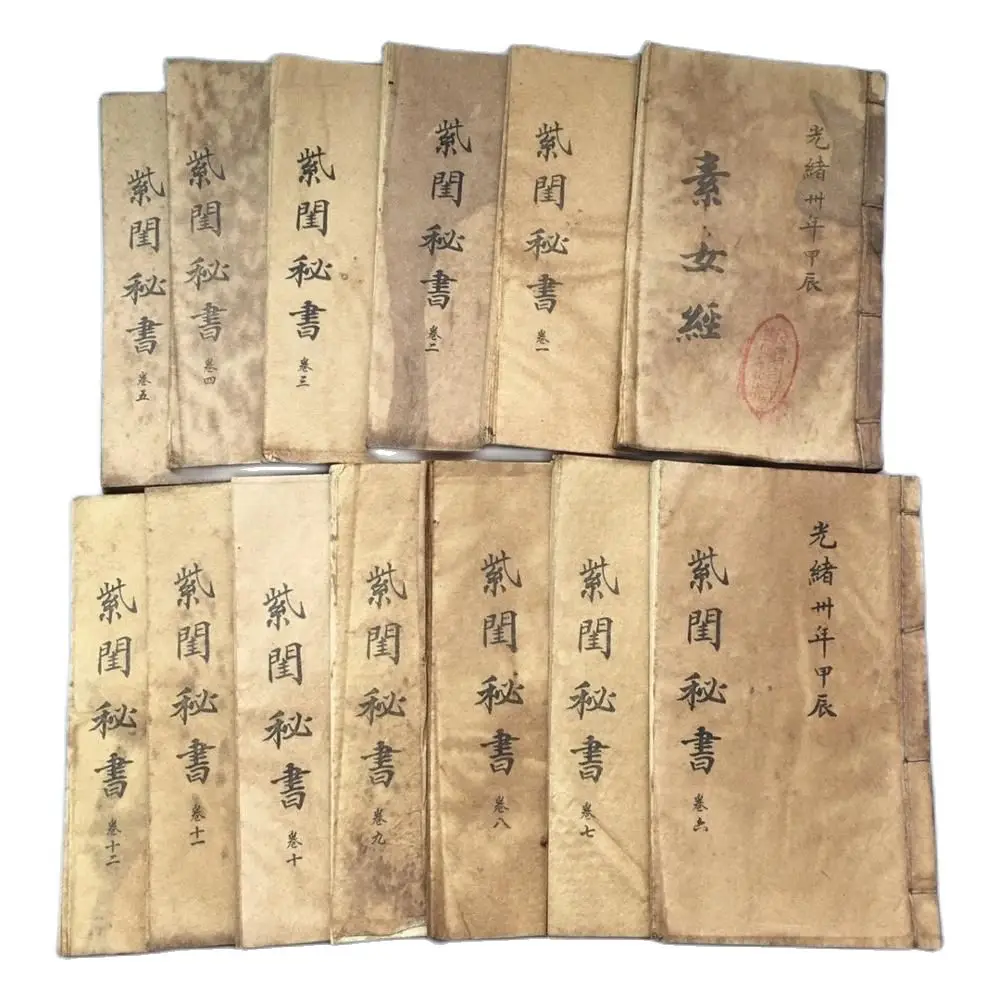 光緒卅年甲辰
素女經
紫閨秘書 卷一
紫閨秘書 卷二
紫閨秘書 卷三
紫閨秘書 卷四
紫閨秘書 卷五
光緒卅年甲辰
紫閨秘書 卷六
紫閨秘書 卷七
紫閨秘書 卷八
紫閨秘書 卷九
紫閨秘書 卷十
紫閨秘書 卷十一
紫閨秘書 卷十二